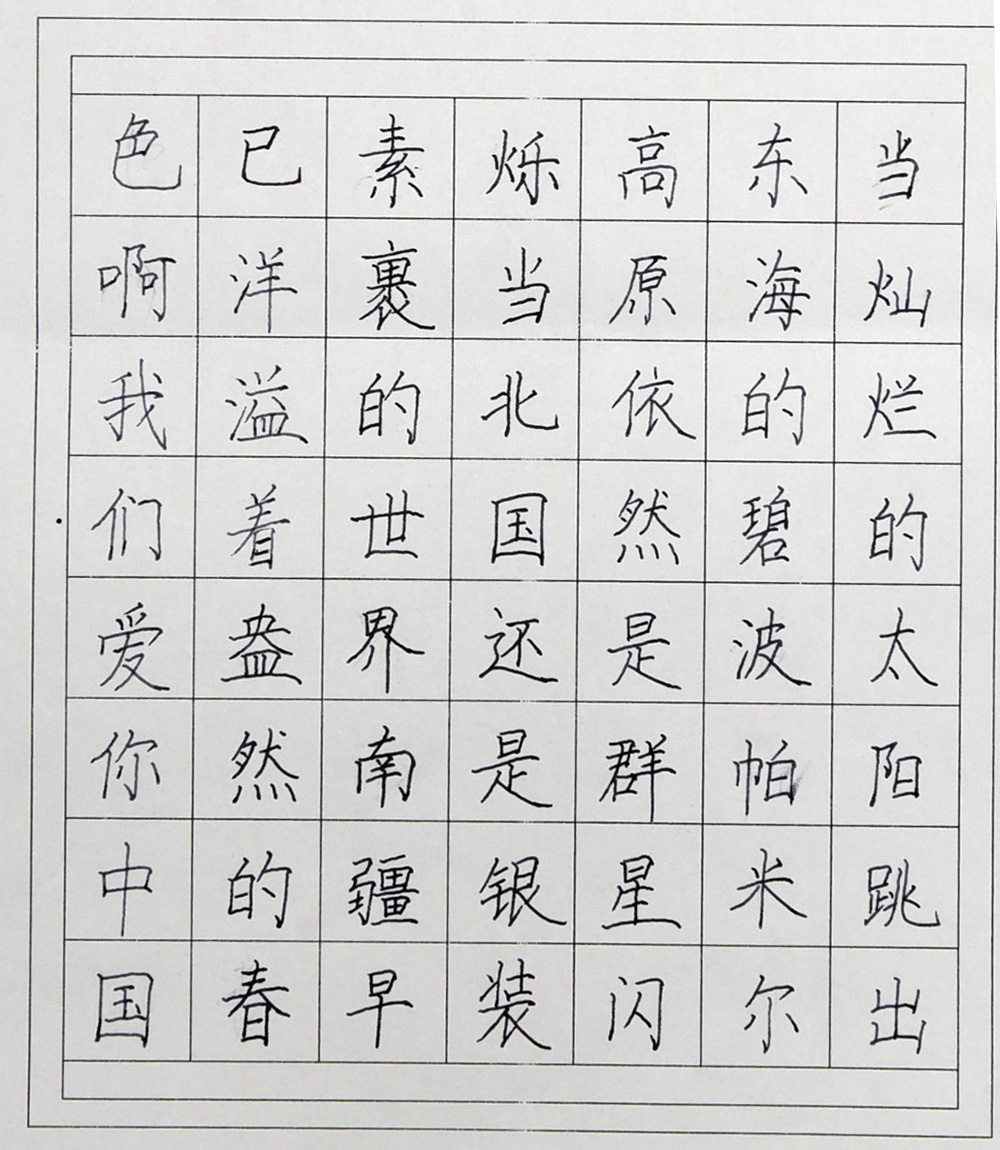 当灿烂的太阳跳出
东海的碧波帕米尔
高原依然是群星闪
烁当北国还是银装
素裹的世界南疆早
已洋溢着盎然的春
色啊我们爱你中国